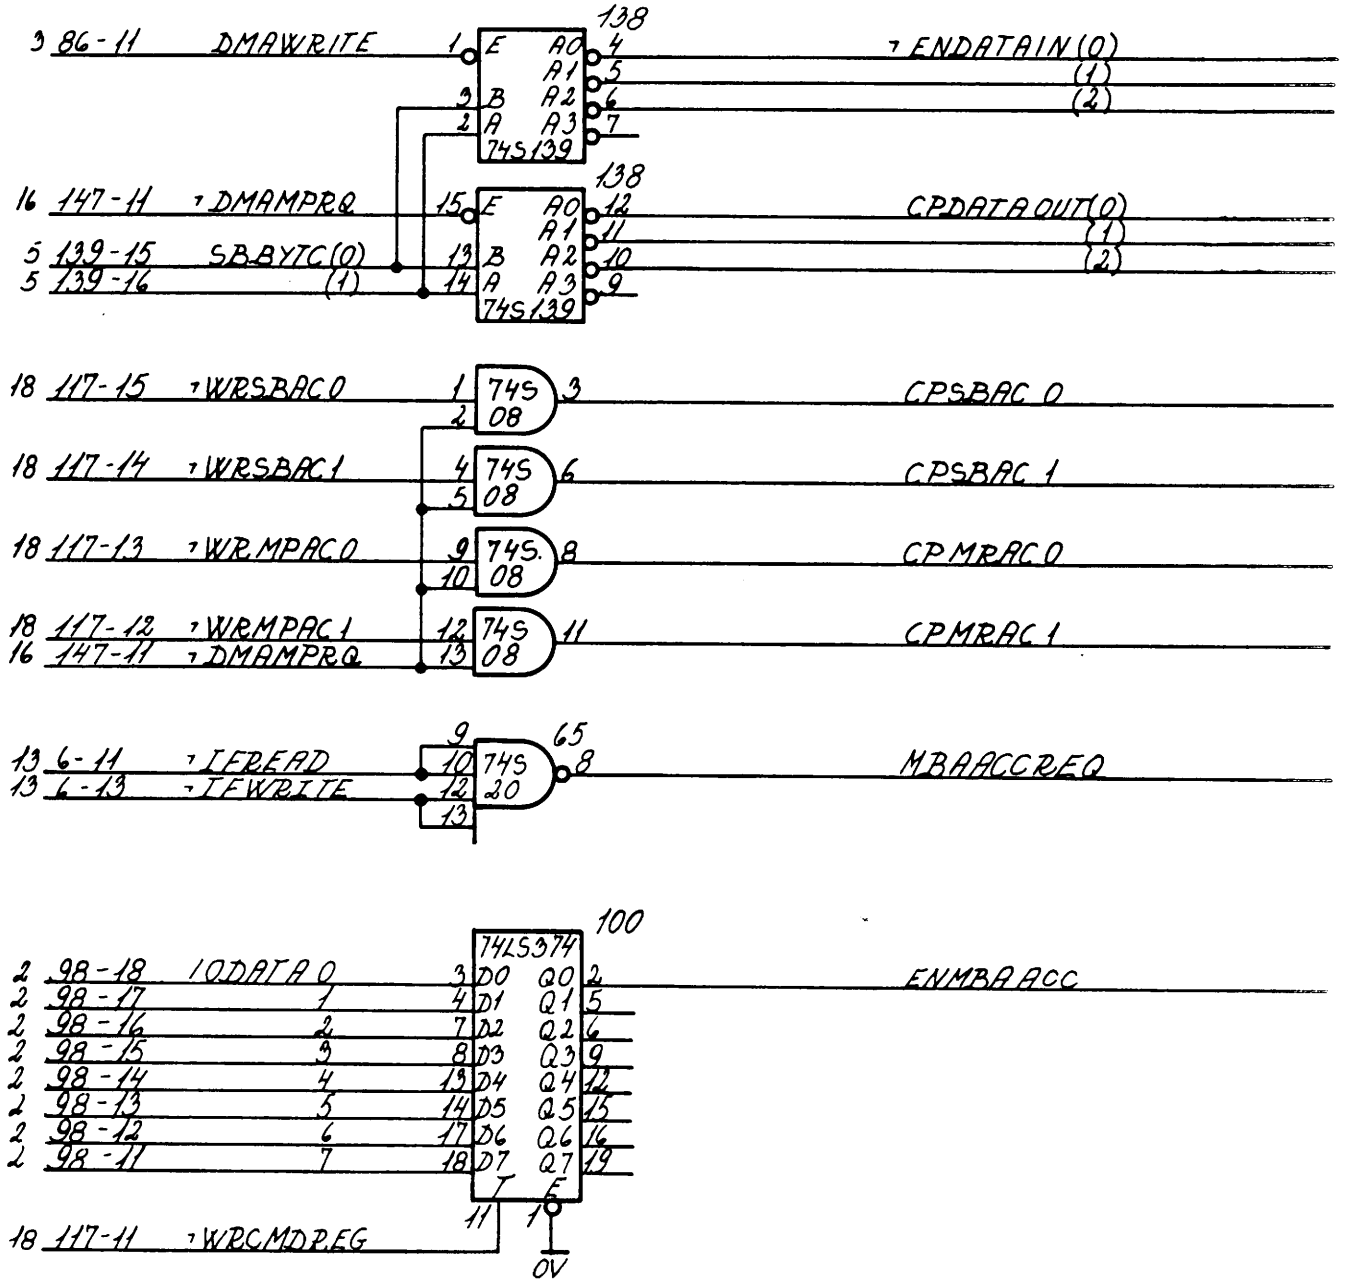 138
3 86-11 DMAWRITE 1 E A0 4 ¬ENDATAIN(0)
A1 5 (1)
3 B A2 6 (2)
2 A A3 7
74S139
138
16 147-11 ¬DMAMPRQ 15 E A0 12 CPDATAOUT(0)
A1 11 (1)
5 139-15 SBBYTC(0) 13 B A2 10 (2)
5 139-16 (1) 14 A A3 9
74S139
18 117-15 ¬WRSBAC0 1 74S 3 CPSBAC 0
2 08
18 117-14 ¬WRSBAC1 4 74S 6 CPSBAC 1
5 08
18 117-13 ¬WRMPAC0 9 74S. 8 CPMRAC 0
10 08
18 117-12 ¬WRMPAC1 12 74S 11 CPMRAC 1
16 147-11 ¬DMAMPRQ 13 08
9 65
13 6-11 ¬IFREAD 10 74S 8 MBAACCREQ
13 6-13 ¬IFWRITE 12 20
13
100
74LS374
2 98-18 IODATA 0 3 D0 Q0 2 ENMBAACC
2 98-17 1 4 D1 Q1 5
2 98-16 2 7 D2 Q2 6
2 98-15 3 8 D3 Q3 9
2 98-14 4 13 D4 Q4 12
2 98-13 5 14 D5 Q5 15
2 98-12 6 17 D6 Q6 16
2 98-11 7 18 D7 Q7 19
T E
11 1
18 117-11 ¬WRCMDREG
0V